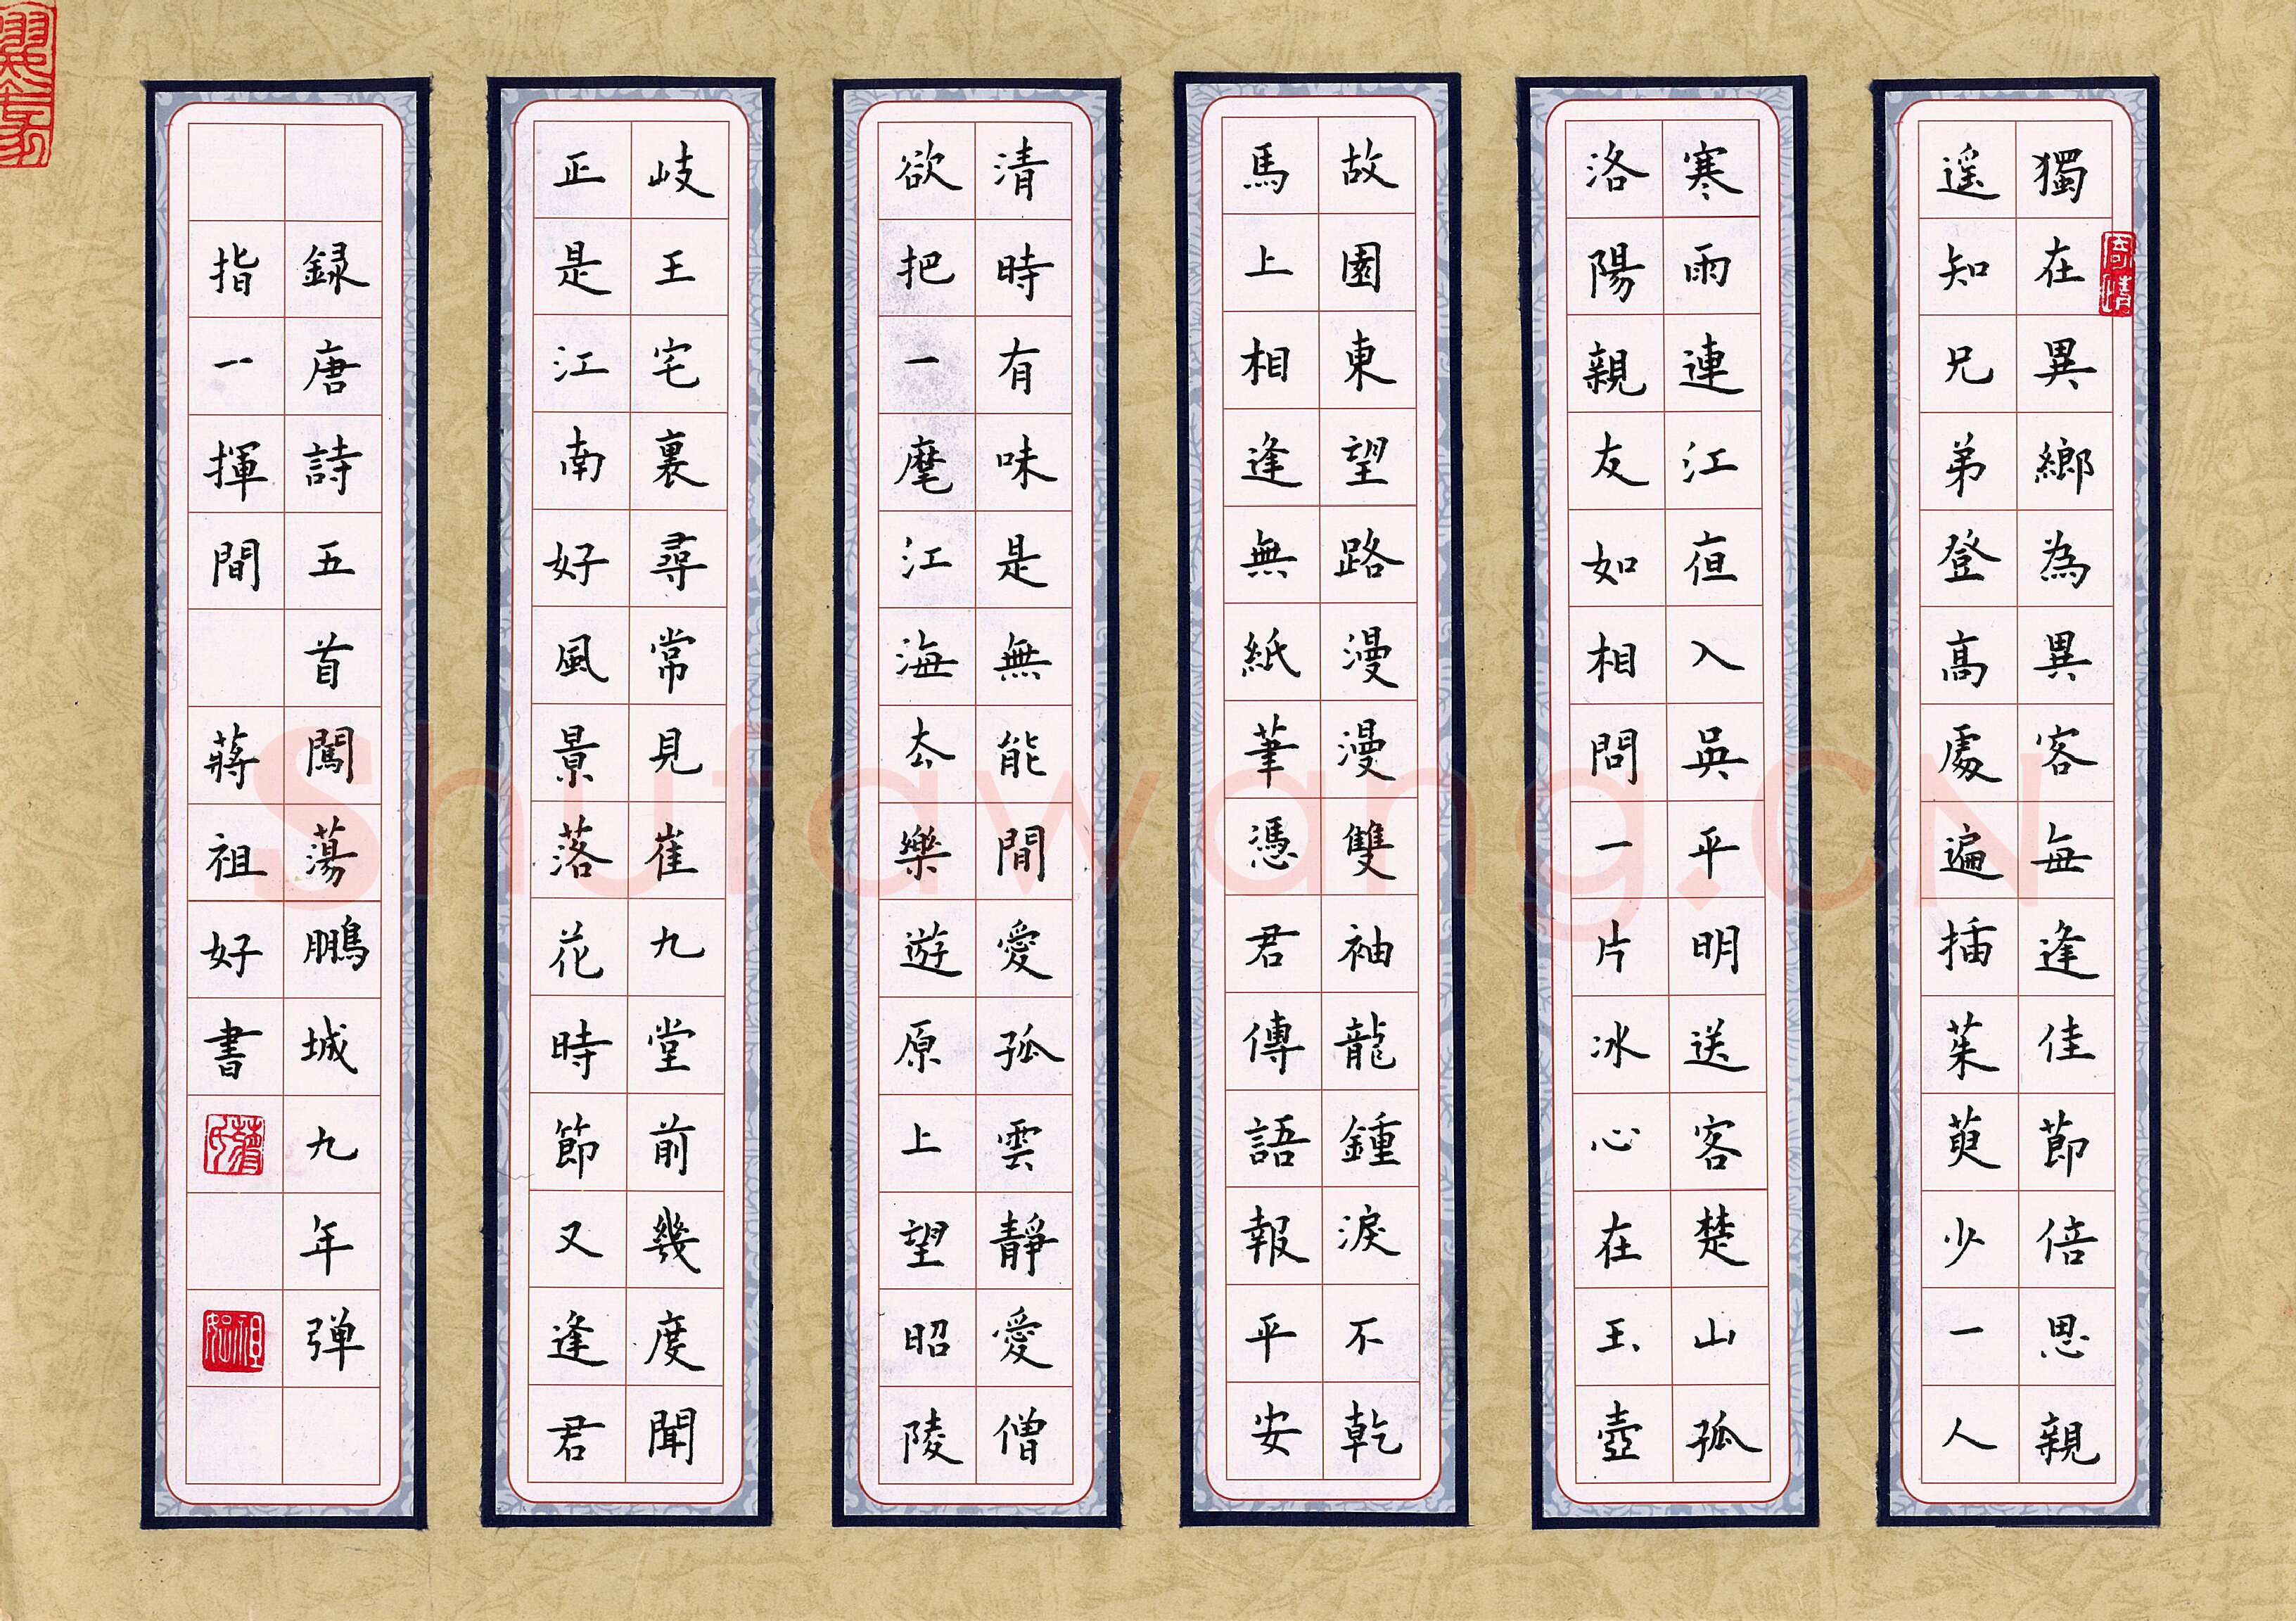 獨在異鄉為異客每逢佳節倍思親
遥知兄弟登高處遍插茱萸少一人
寒雨連江夜入吳平明送客楚山孤
洛陽親友如相問一片冰心在玉壺
故園東望路漫漫雙袖龍鍾淚不乾
馬上相逢無紙筆憑君傳語報平安
清時有味是無能閒愛孤雲靜愛僧
欲把一麾江海去樂遊原上望昭陵
岐王宅裏尋常見崔九堂前幾度聞
正是江南好風景落花時節又逢君
録唐詩五首闖蕩鵬城九年弹
指一揮間 蔣祖好書
Shufawang.CN